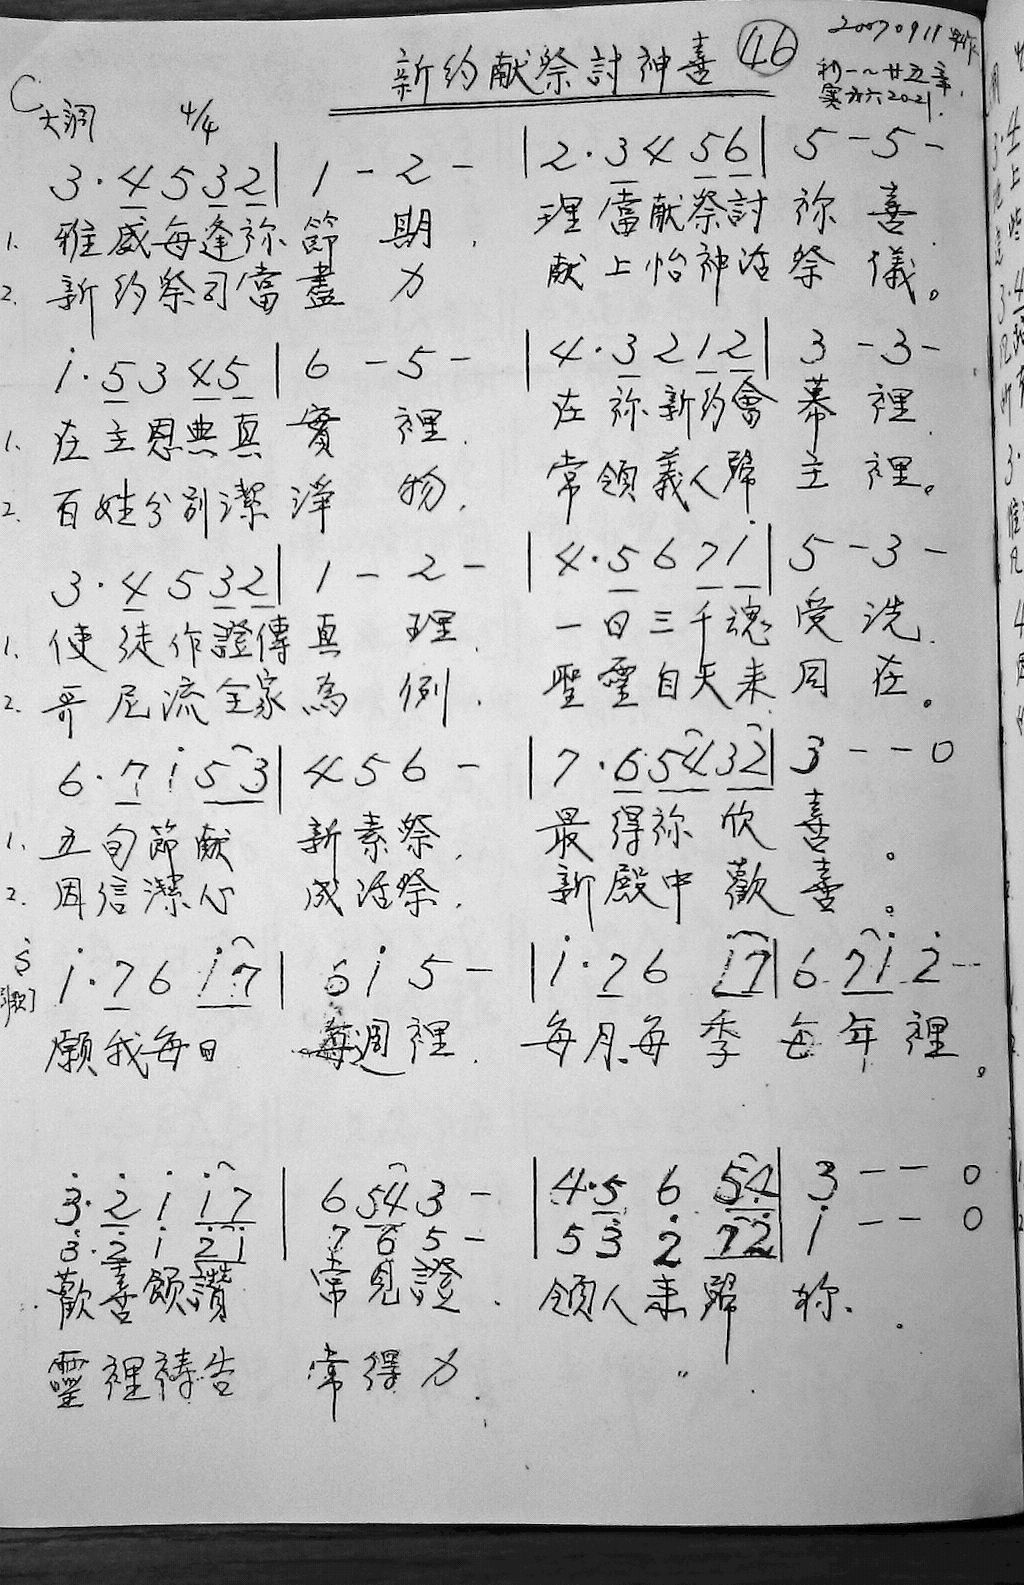 新約献祭討神喜 46 20070911
利一~廿五章
C大調 4/4
3·4532|1-2-|2·3456|5-5-
1. 雅威每逢祢節期,理當献祭討祢喜
2. 新約祭司當盡力 献上怡神活祭儀。
i·5345|6-5-|4·3212|3-3-
1. 在主恩典真實裡,在祢新約會幕裡
2. 百姓分別潔淨物,常領義人歸主裡。
3·4532|1-2-|4·567i|5-3-
1. 使徒作證傳真理,一日三千魂受洗
2. 哥尼流全家為例,聖靈自天来同在。
6·7i53|456-|7·65432|3--0
1. 五旬節献新素祭,最得祢欣喜。
2. 因信潔心成活祭,新殿中歡喜。
i·76i7|6i5-|i·76i7|67i2--
願我每日每週裡,每月每季每年裡。
3·2ii7|6543-|4·5654|3--0
3·2i2i|765-|53272|i--0
歡喜頌讚常見證,領人来歸祢。
靈裡禱告常得力 〃